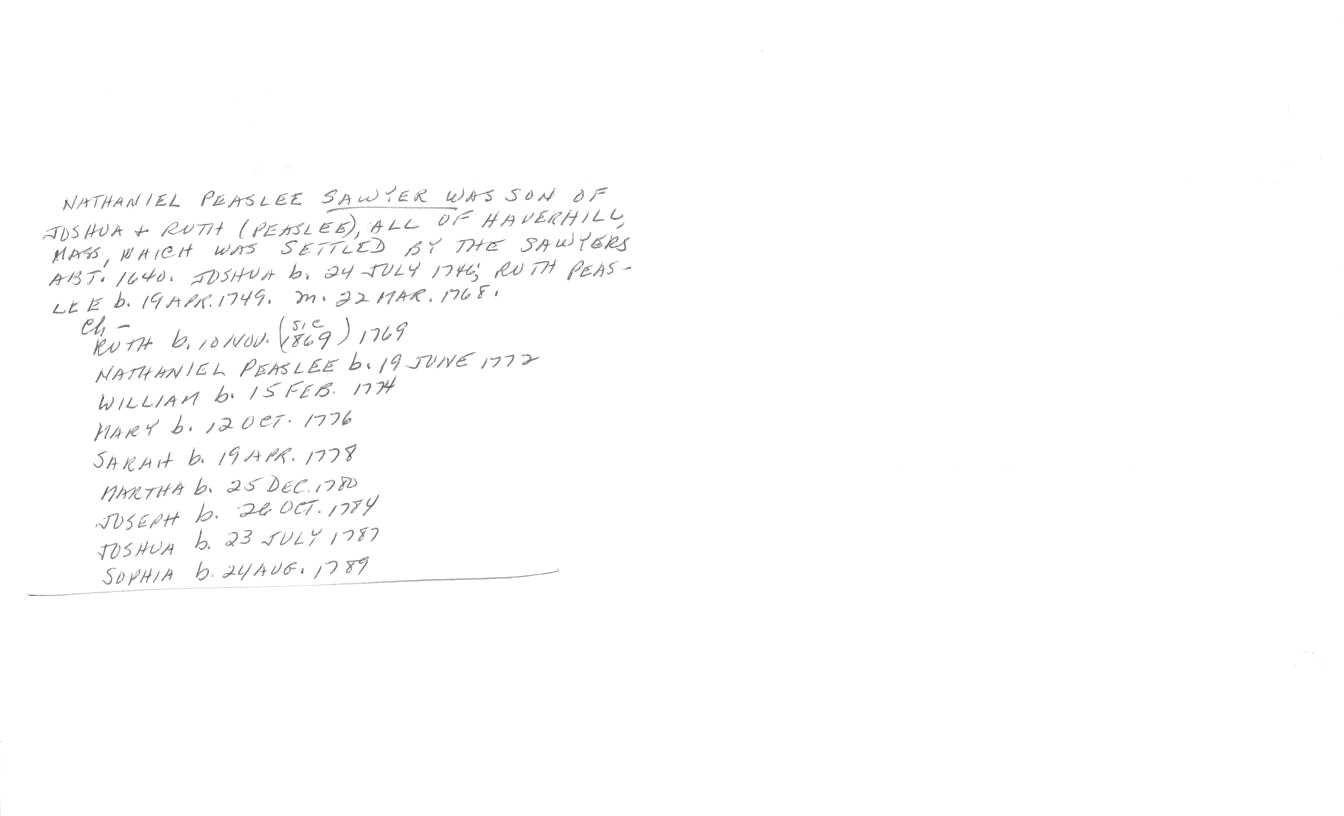 NATHANIEL PEASLEE SAWYER WAS SON OF
JOSHUA + RUTH (PEASLEE), ALL OF HAVERHILL,
MASS, WHICH WAS SETTLED BY THE SAWYERS
ABT. 1640. JOSHUA b. 24 JULY 1746; RUTH PEAS-
LEE b. 19 APR. 1749. m. 22 MAR. 1768.
Ch -
RUTH b. 10 NOV. (SIC 1869) 1769
NATHANIEL PEASLEE b. 19 JUNE 1772
WILLIAM b. 15 FEB. 1774
MARY b. 12 OCT. 1776
SARAH b. 19 APR. 1778
MARTHA b. 25 DEC. 1780
JOSEPH b. OCT. 1784
JOSHUA b. 23 JULY 1787
SOPHIA b. 24 AUG. 1789